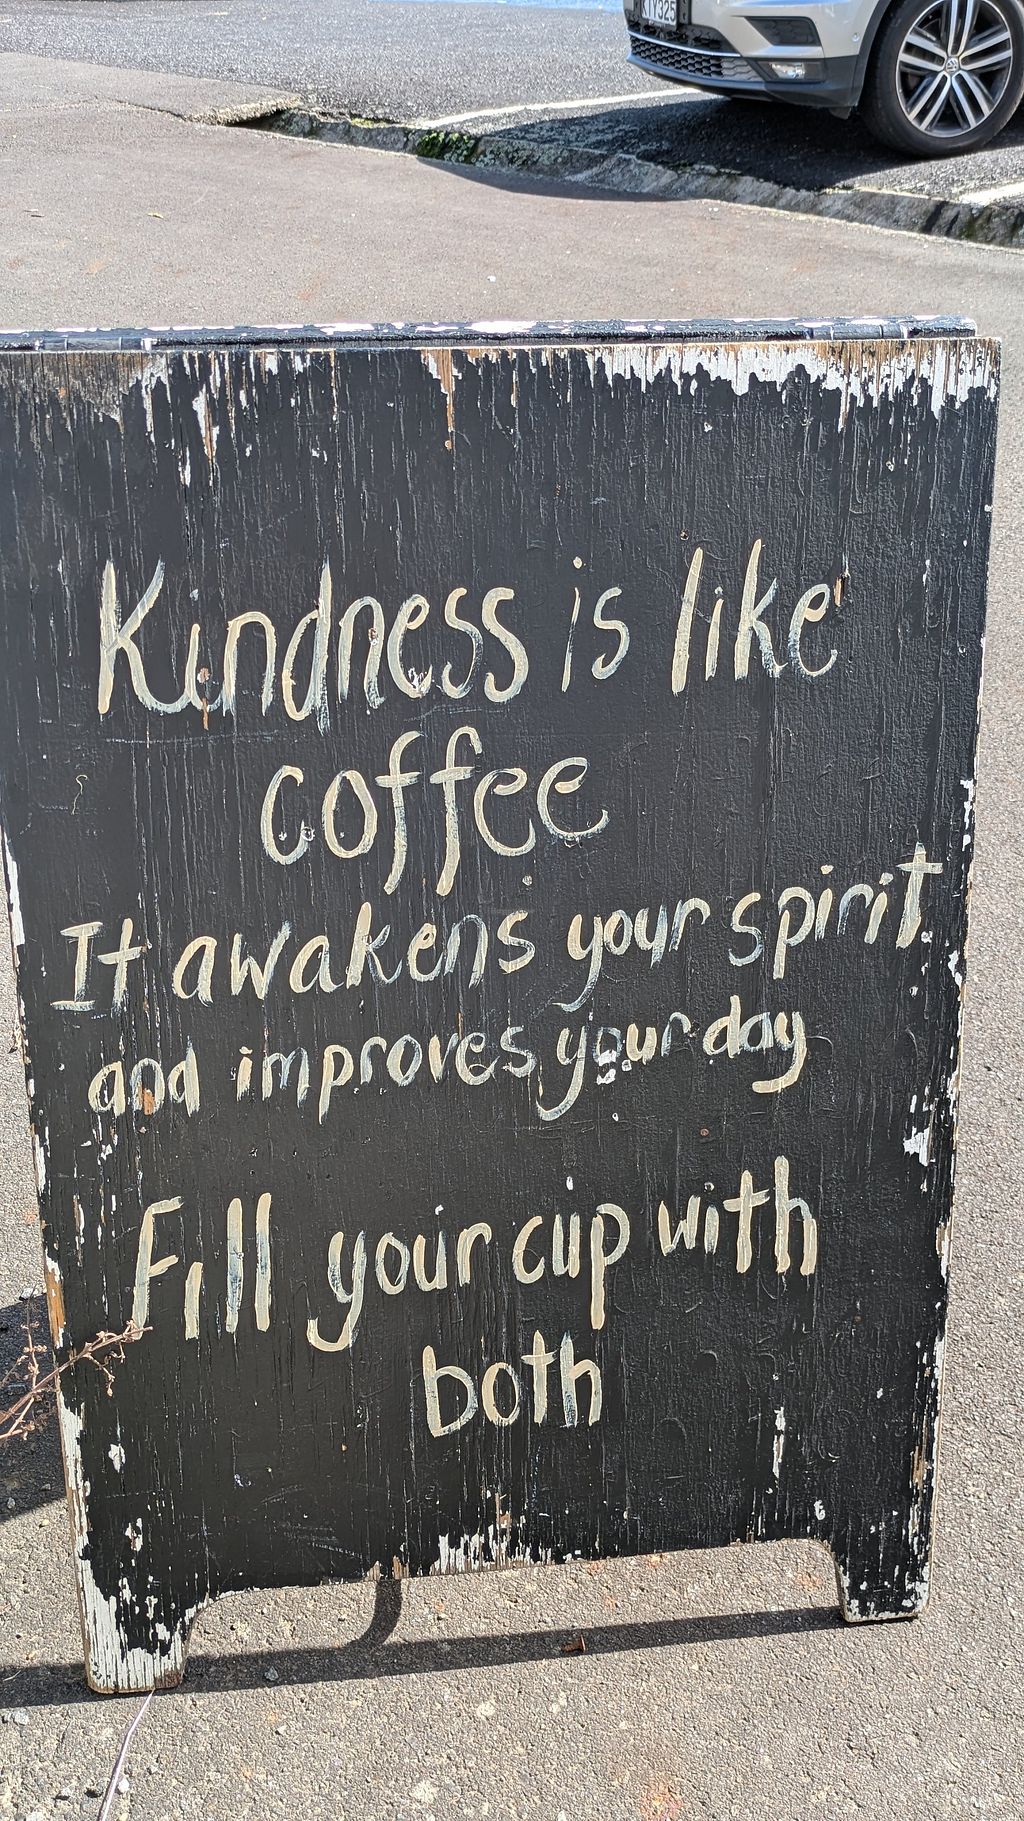 KTY325
Kindness is like
coffee
It awakens your spirit
and improves your day
Fill your cup with
both